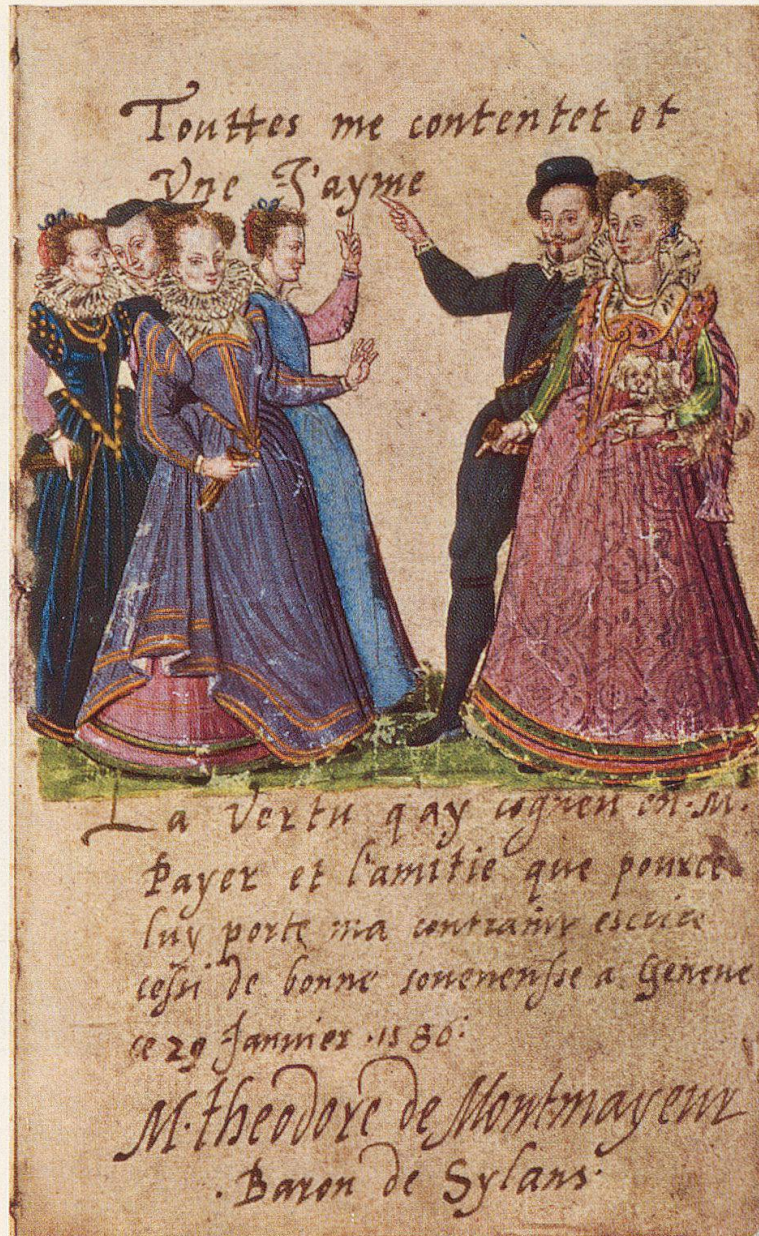 Touttes me contentet et
Vne J'ayme
La Vertu q ay cogneu en. M.
Payer et l'amitie que pource
luy porte ma contraint escrire
cessi de bonne souenensse a Geneue
ce 29 Janvier .1586:
M. theodore de Montmayeur
. Baron de Sylans.